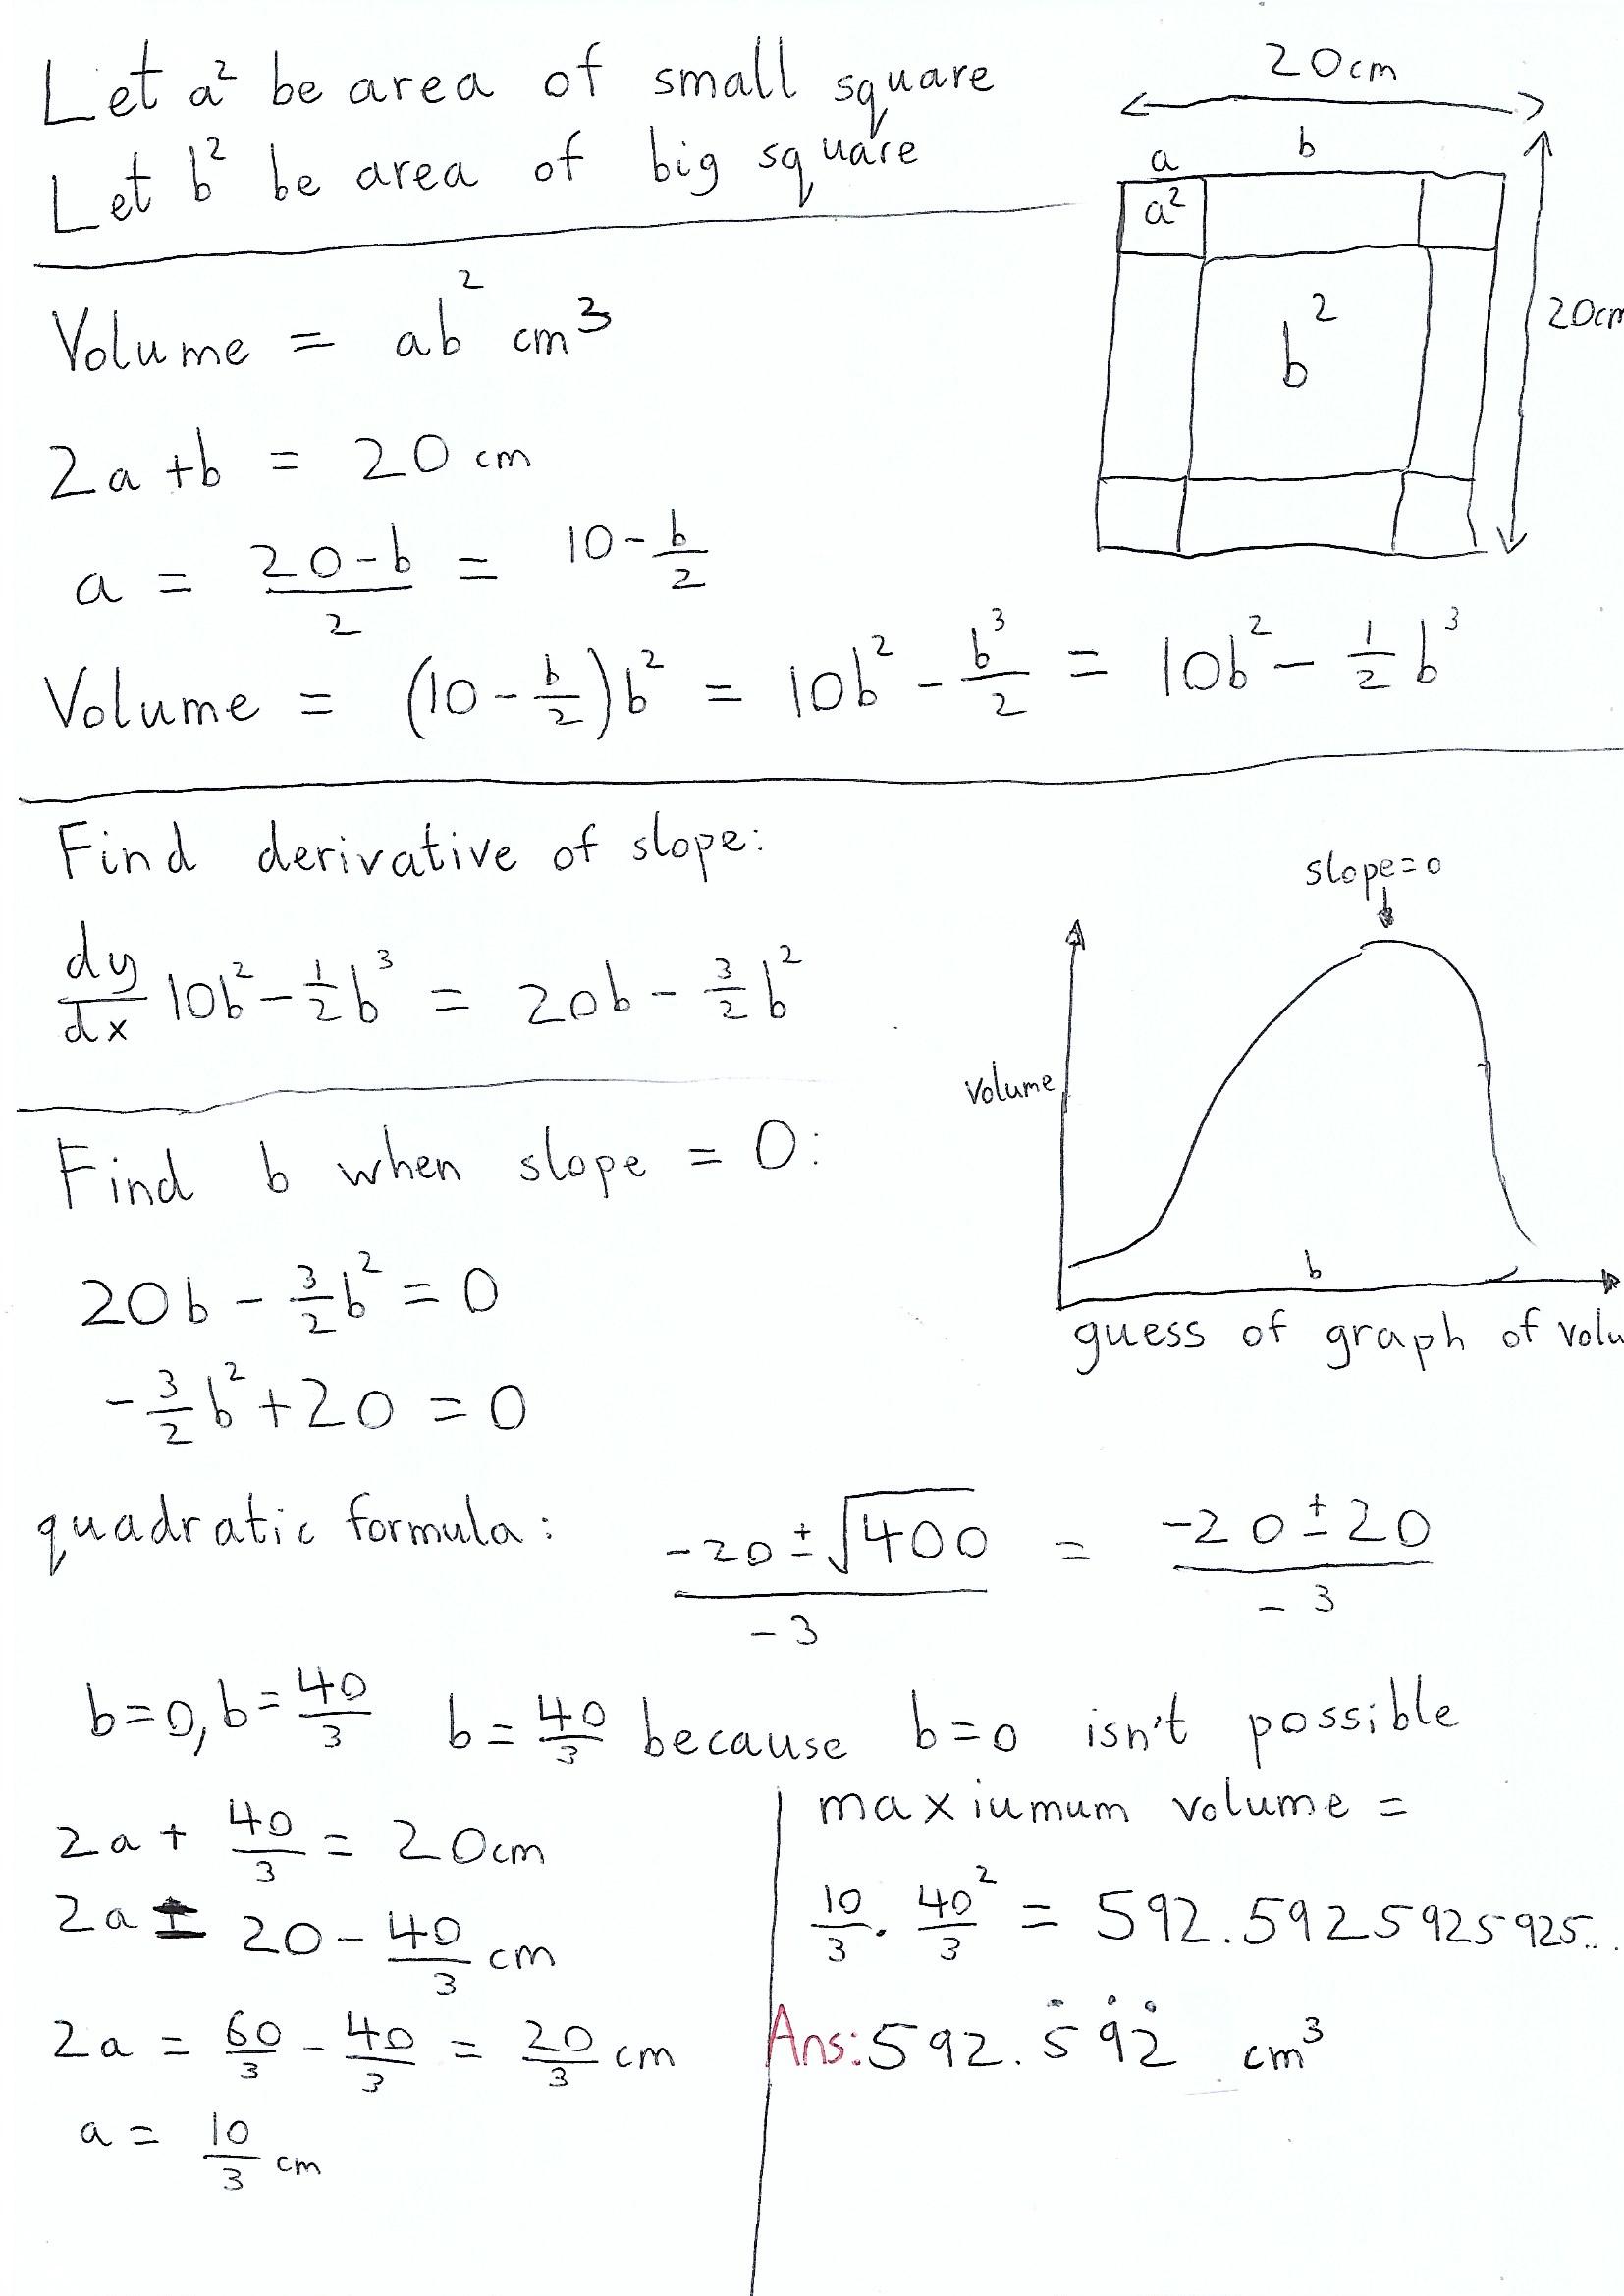 Let a² be area of small square
Let b² be area of big square
20cm
a b
a²
b²
20cm
Volume = ab² cm³
2a+b = 20 cm
a = (20-b)/2 = 10 - b/2
Volume = (10 - b/2)b² = 10b² - b³/2 = 10b² - 1/2 b³
Find derivative of slope:
dy/dx 10b² - 1/2 b³ = 20b - 3/2 b²
slope=0
volume
b
guess of graph of volu
Find b when slope = 0:
20b - 3/2 b² = 0
-3/2 b² + 20 = 0
quadratic formula: (-20 ± √400)/-3 = (-20 ± 20)/-3
b=0, b=40/3 b = 40/3 because b=0 isn't possible
2a + 40/3 = 20cm
2a = 20 - 40/3 cm
2a = 60/3 - 40/3 = 20/3 cm
a = 10/3 cm
maxiumum volume =
10/3 . 40²/3 = 592.5925925925...
Ans: 592.5̇9̇2̇ cm³